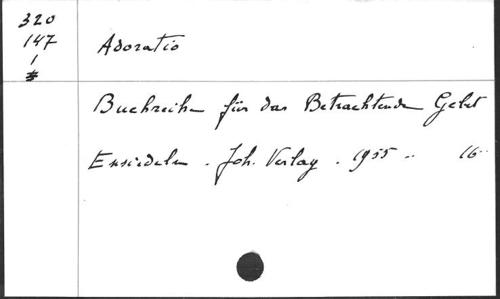 320
147
1
#
Adoratio
Buchreihe für das Betrachtende Gebet
Einsiedeln . Joh. Verlag . 1955 .. 16